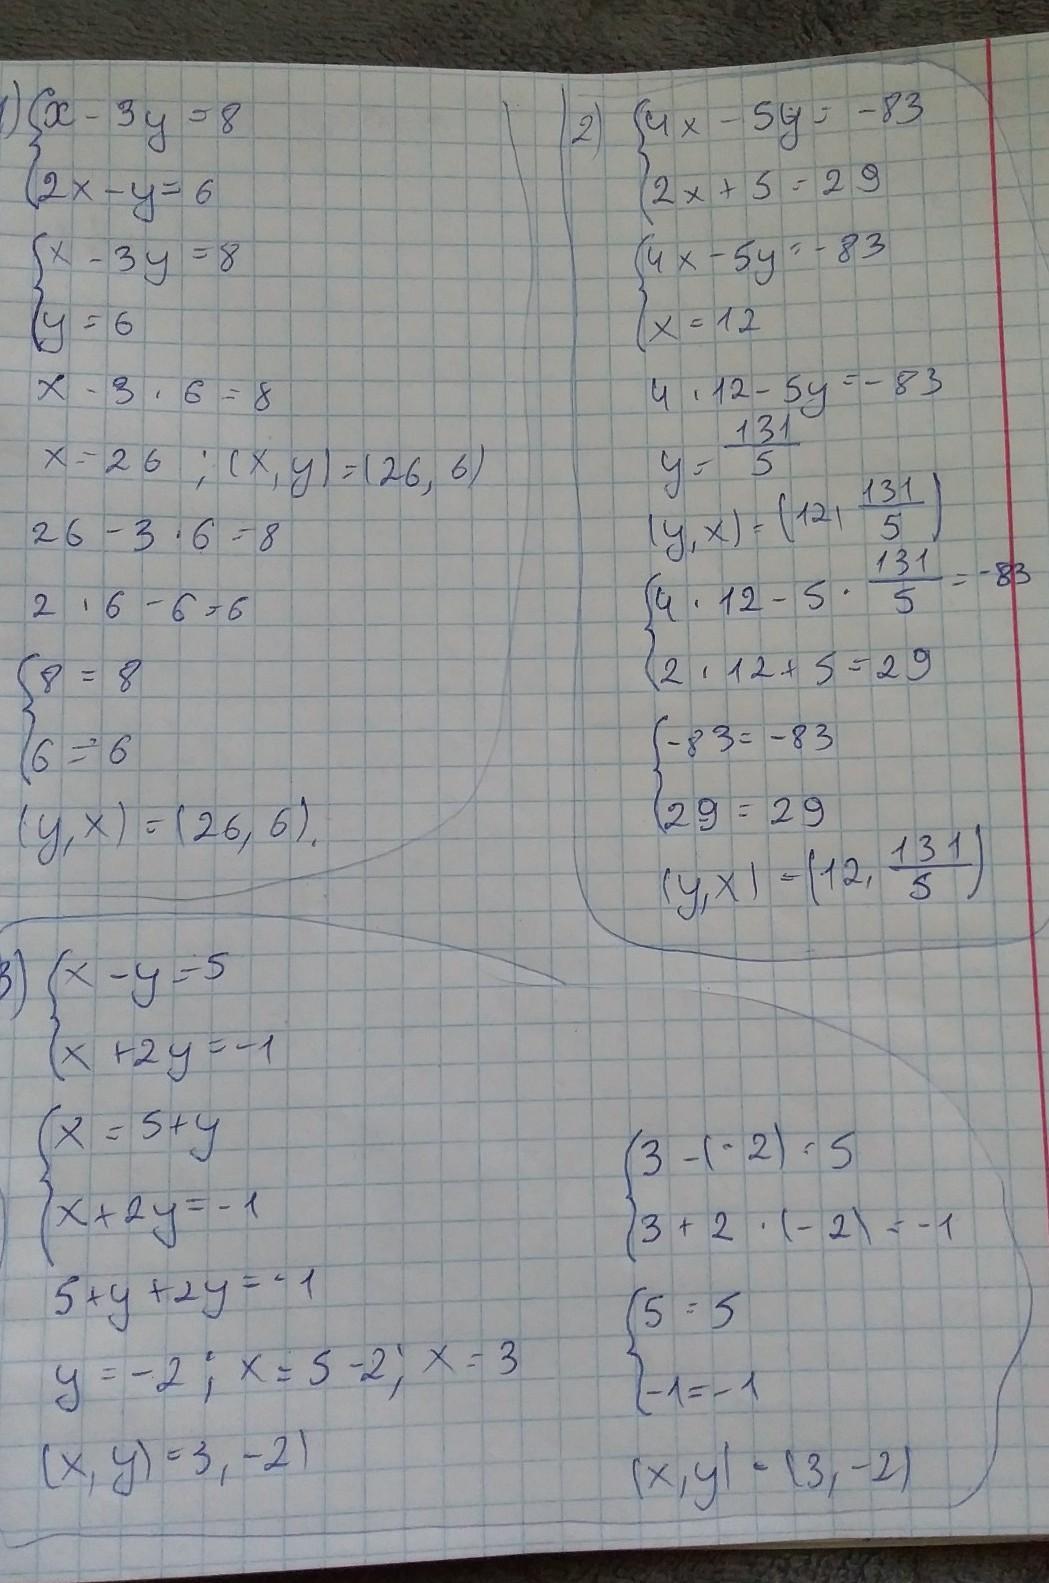 1) { x - 3y = 8
2x - y = 6
{ x - 3y = 8
y = 6
x - 3 · 6 = 8
x = 26 ; (x, y) = (26, 6)
26 - 3 · 6 = 8
2 · 6 - 6 = 6
{ 8 = 8
6 = 6
(y, x) = (26, 6).
2) { 4x - 5y = -83
2x + 5 = 29
{ 4x - 5y = -83
x = 12
4 · 12 - 5y = -83
y = 131/5
(y, x) = (12, 131/5)
{ 4 · 12 - 5 · 131/5 = -83
2 · 12 + 5 = 29
{ -83 = -83
29 = 29
(y, x) = (12, 131/5)
3) { x - y = 5
x + 2y = -1
{ x = 5 + y
x + 2y = -1
5 + y + 2y = -1
y = -2 ; x = 5 - 2 ; x = 3
(x, y) = 3, -2)
{ 3 - (-2) = 5
3 + 2 · (-2) = -1
{ 5 = 5
-1 = -1
(x, y) = (3, -2)